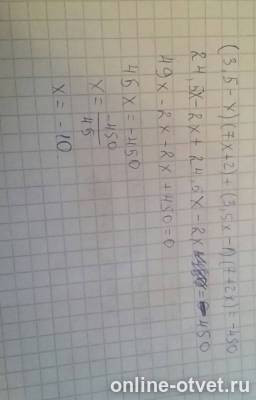 (3,5-x)(7x+2)+(3,5x-1)(7+2x)=-450
24,5x-2x+24,5x-2x=-450
49x-2x+2x+450=0
45x=-450
x=-450/45
x=-10
online-otvet.ru